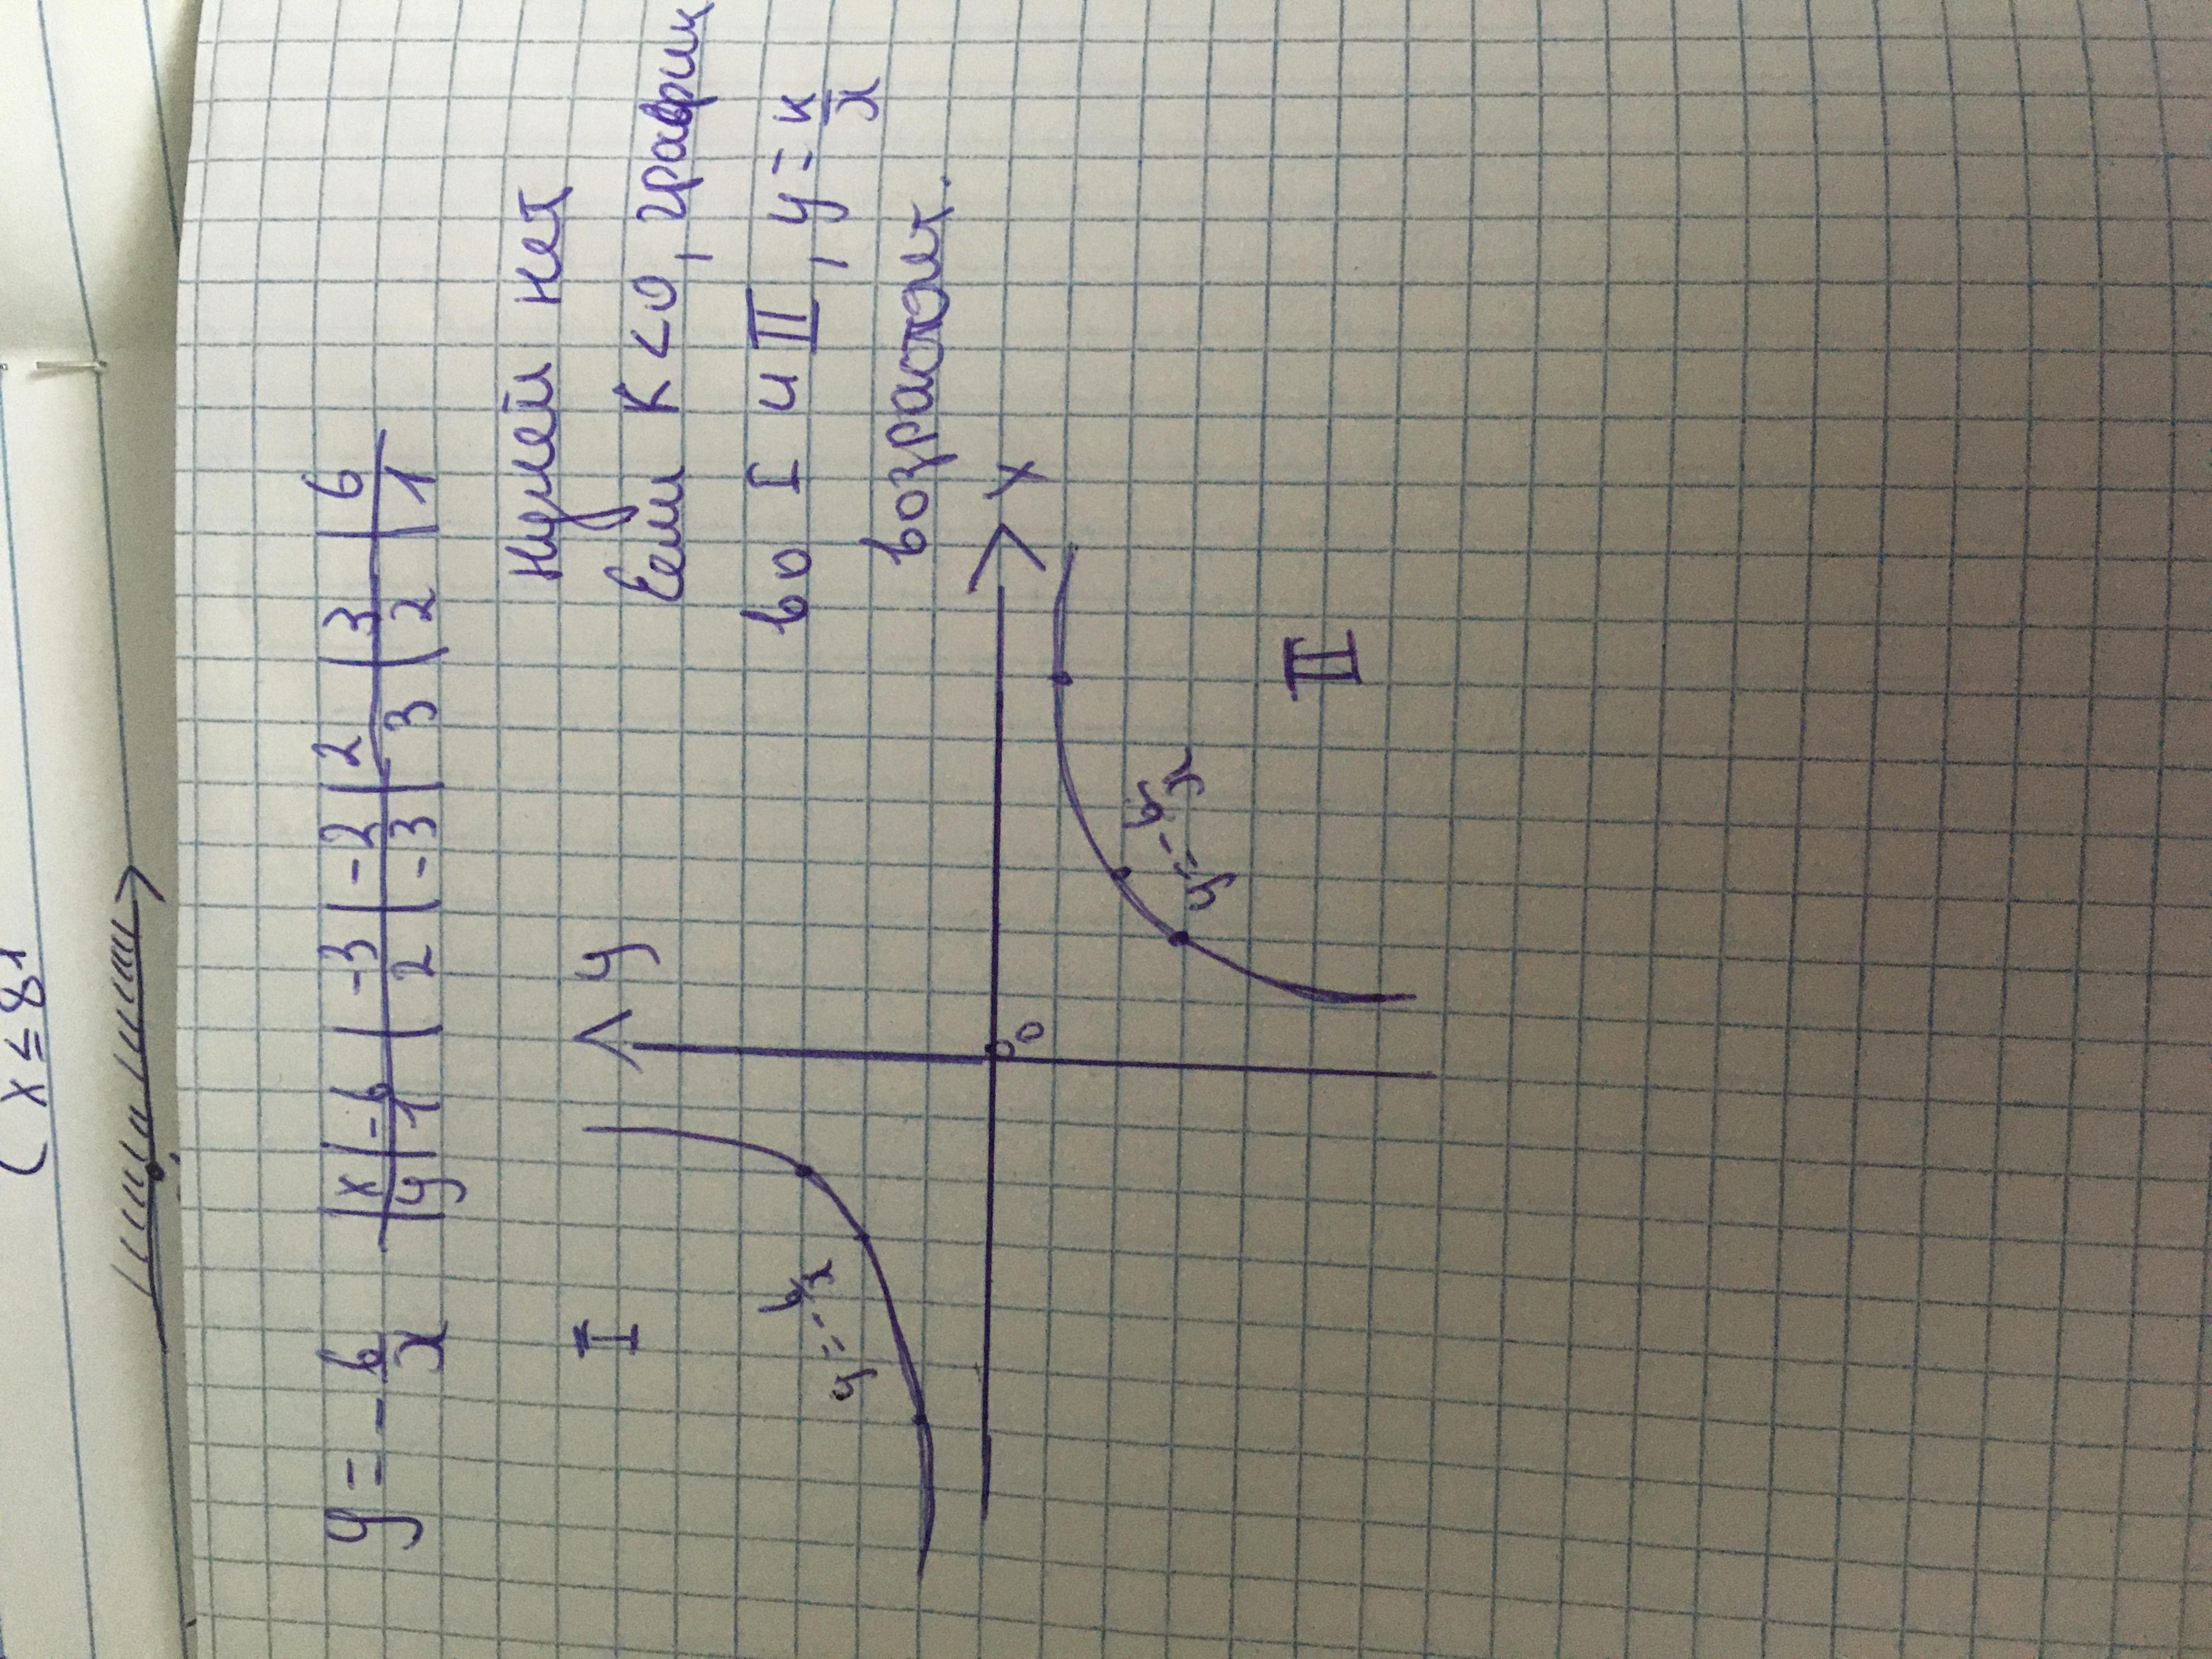 (x ≤ 81
y = - 6/x
x | -6 | -3 | -2 | 2 | 3 | 6
y | 1 | 2 | -3 | 3 | 2 | 1
Нулей нет
Если K < 0, график
во I и II, y = к/x
возрастает.
I
y
y = - 6/x
x
0
y = - 6/x
II